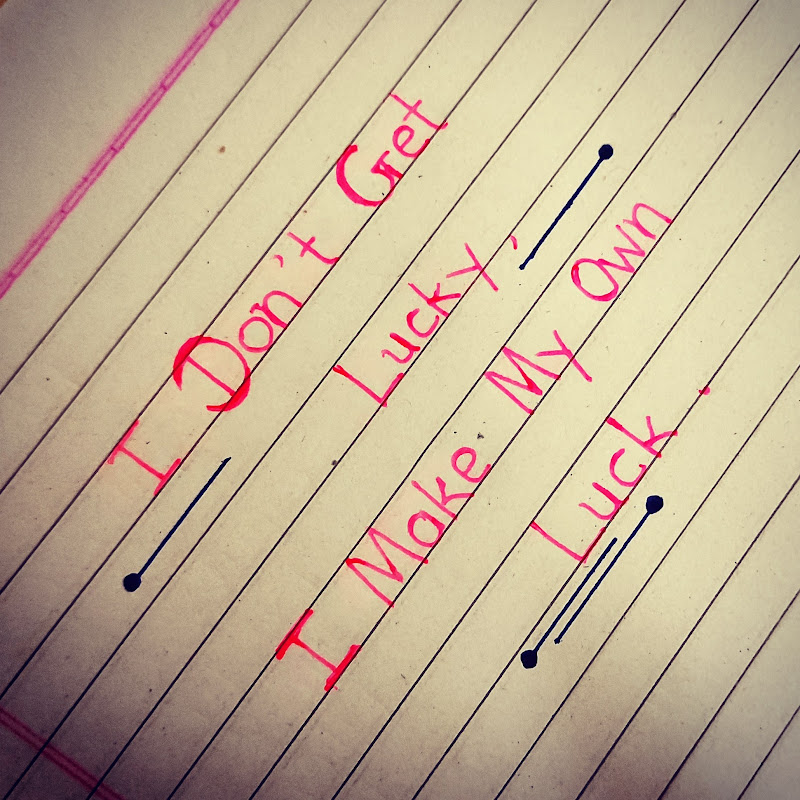 I Don't Get
Lucky,
I Make My Own
Luck.